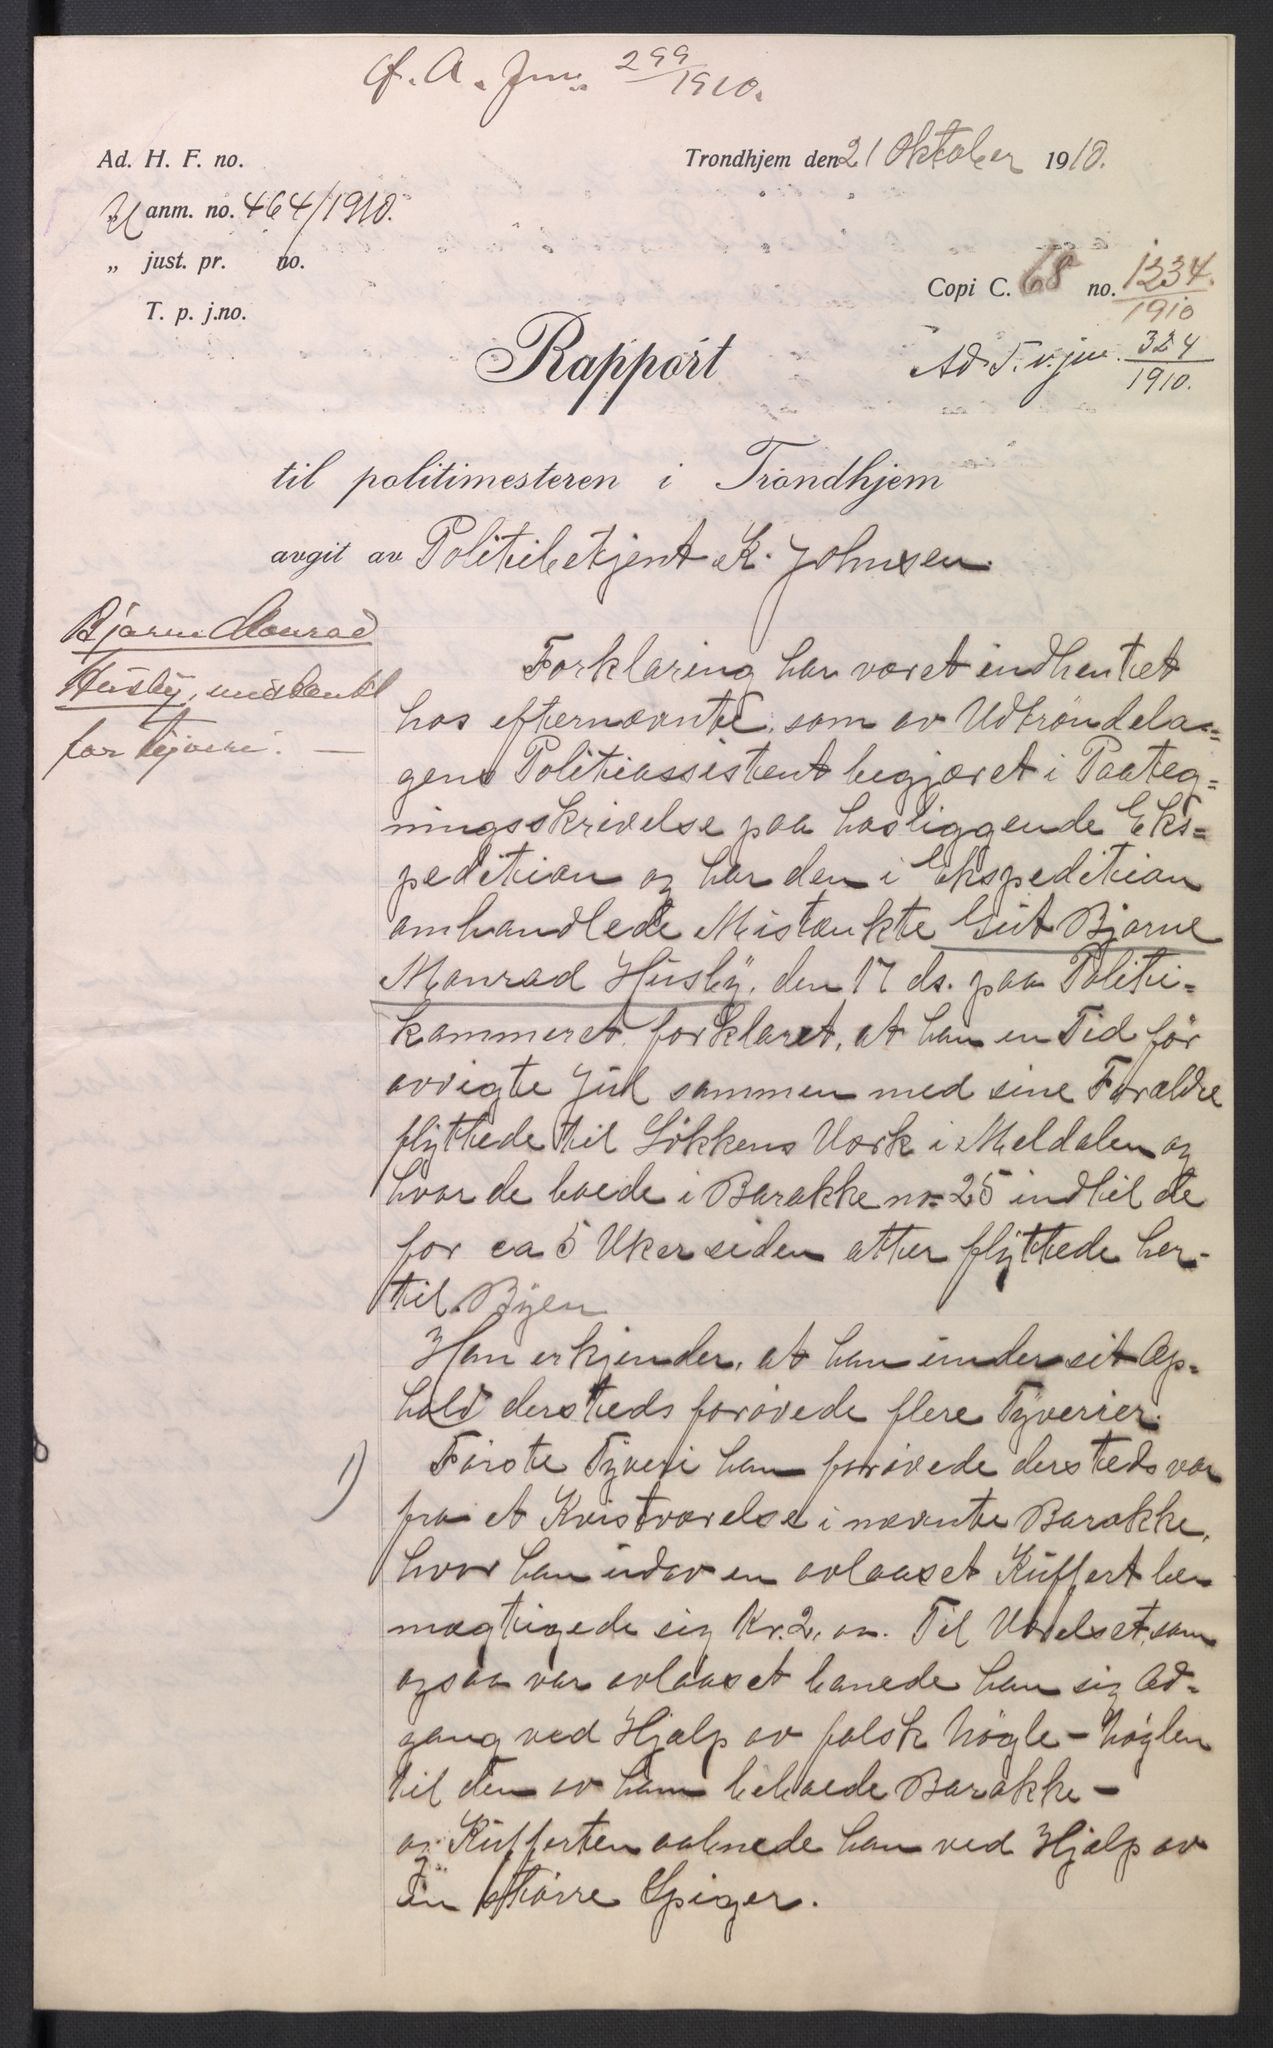 Cf. A. Jnr. 299/1910.
Ad. H. F. no.
Trondhjem den 21 Oktober 1910.
U anm. no. 464/1910.
„ just. pr. no.
Copi C. 68 no. 1334/1910
T. p. j.no.
Ad. T. v. jnr. 324/1910.
Rapport
til politimesteren i Trondhjem
avgit av Politibetjent K. Johnsen.
Bjarne Monrad
Husby, mistænkt
for tyveri. —
Forklaring har været indhentet
hos efternævnte, som av Utdröndela=
gens Politiassistent begjæret i Paateg=
ningsskrivelse paa hosliggende Eks=
pedition og har den i Ekspedition
omhandlede Mistænkte Gut Bjarne
Monrad Husby, den 17 ds. paa Politi=
kammeret forklaret, at han en Tid før
avvigte Jul sammen med sine Forældre
flyttede til Løkkens Værk i Meldalen og
hvor de boede i Barakke no 25 indtil de
for ca 5 Uker siden atter flyttede her-
til Byen
Han erkjender, at han under sit Op=
hold dersteds forøvede flere Tyverier.
1) Første Tyveri han forøvede dersteds var
fra et Kvistværelse i nævnte Barakke,
hvor han udav en avlaaset Kuffert be
mægtigede sig Kr. 2,00. Til Værelset, som
ogsaa var avlaaset banede han sig Ad=
gang ved Hjælp av falsk Nøgle – Nøglen
til den av ham beboede Barakke –
og Kufferten aabnede han ved Hjælp av
en større Spiger.